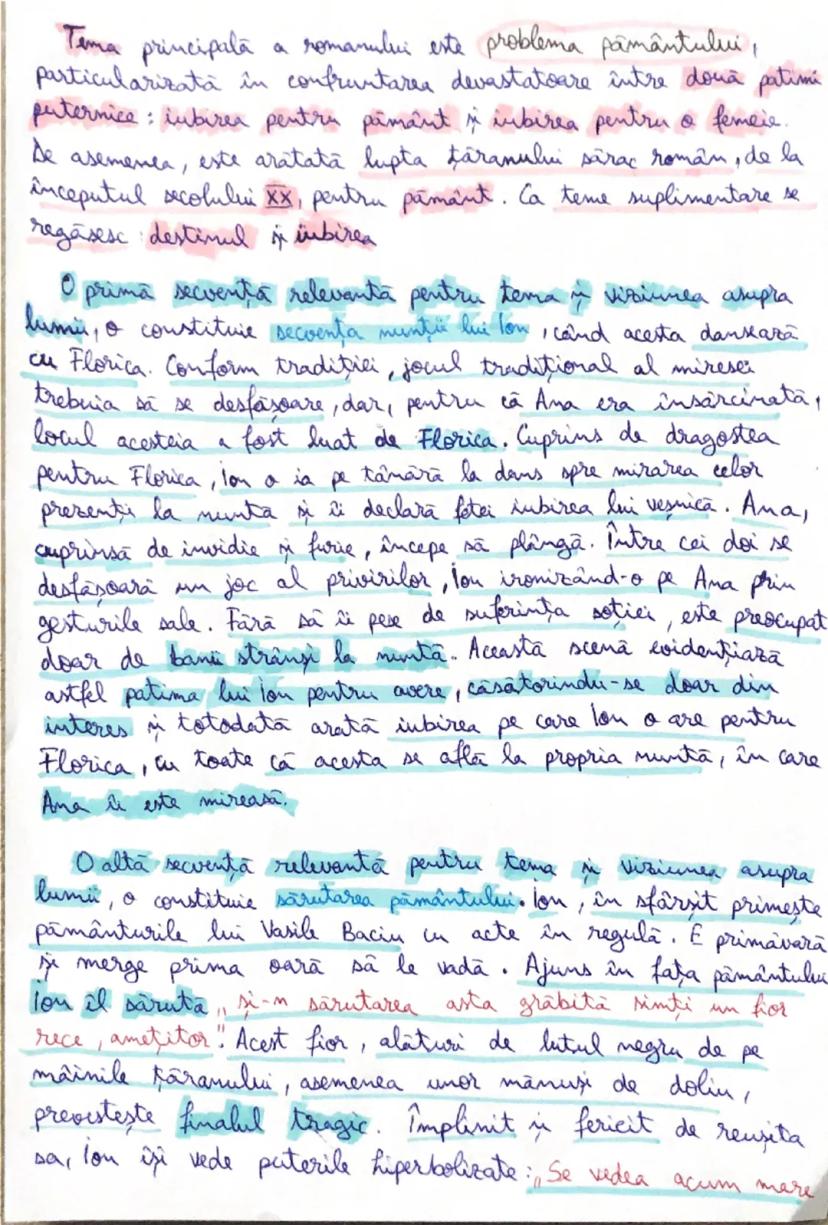 Tema principală a romanului este problema pământului,
particularizată în confruntarea devastatoare între două patimi
puternice: iubirea pentru pământ și iubirea pentru o femeie.
De asemenea, este arătată lupta țăranului sărac român, de la
începutul secolului XX, pentru pământ. Ca teme suplimentare se
regăsesc: destinul și iubirea
O primă secvență relevantă pentru tema și viziunea asupra
lumii, o constituie secvența nunții lui Ion, când acesta dansează
cu Florica. Conform tradiției, jocul tradițional al miresei
trebuia să se desfășoare, dar, pentru că Ana era însărcinată,
locul acesteia a fost luat de Florica. Cuprins de dragostea
pentru Florica, Ion o ia pe tânără la dans spre mirarea celor
prezenți la nuntă și îi declară fetei iubirea lui veșnică. Ana,
cuprinsă de invidie și furie, începe să plângă. Între cei doi se
desfășoară un joc al privirilor, Ion ironizând-o pe Ana prin
gesturile sale. Fără să îi pese de suferința soției, este preocupat
doar de banii strânși la nuntă. Această scenă evidențiază
astfel patima lui Ion pentru avere, căsătorindu-se doar din
interes și totodată arată iubirea pe care Ion o are pentru
Florica, cu toate că acesta se află la propria nuntă, în care
Ana îi este mireasă.
O altă secvență relevantă pentru tema și viziunea asupra
lumii, o constituie sărutarea pământului. Ion, în sfârșit primește
pământurile lui Vasile Baciu cu acte în regulă. E primăvară
și merge prima oară să le vadă. Ajuns în fața pământului
Ion îl sărută „și-n sărutarea asta grăbită simți un fior
rece, amețitor". Acest fior, alături de lutul negru de pe
mâinile țăranului, asemenea unor mănuși de doliu,
prevestește finalul tragic. Împlinit și fericit de reușita
sa, Ion își vede puterile hiperbolizate: „Se vedea acum mare